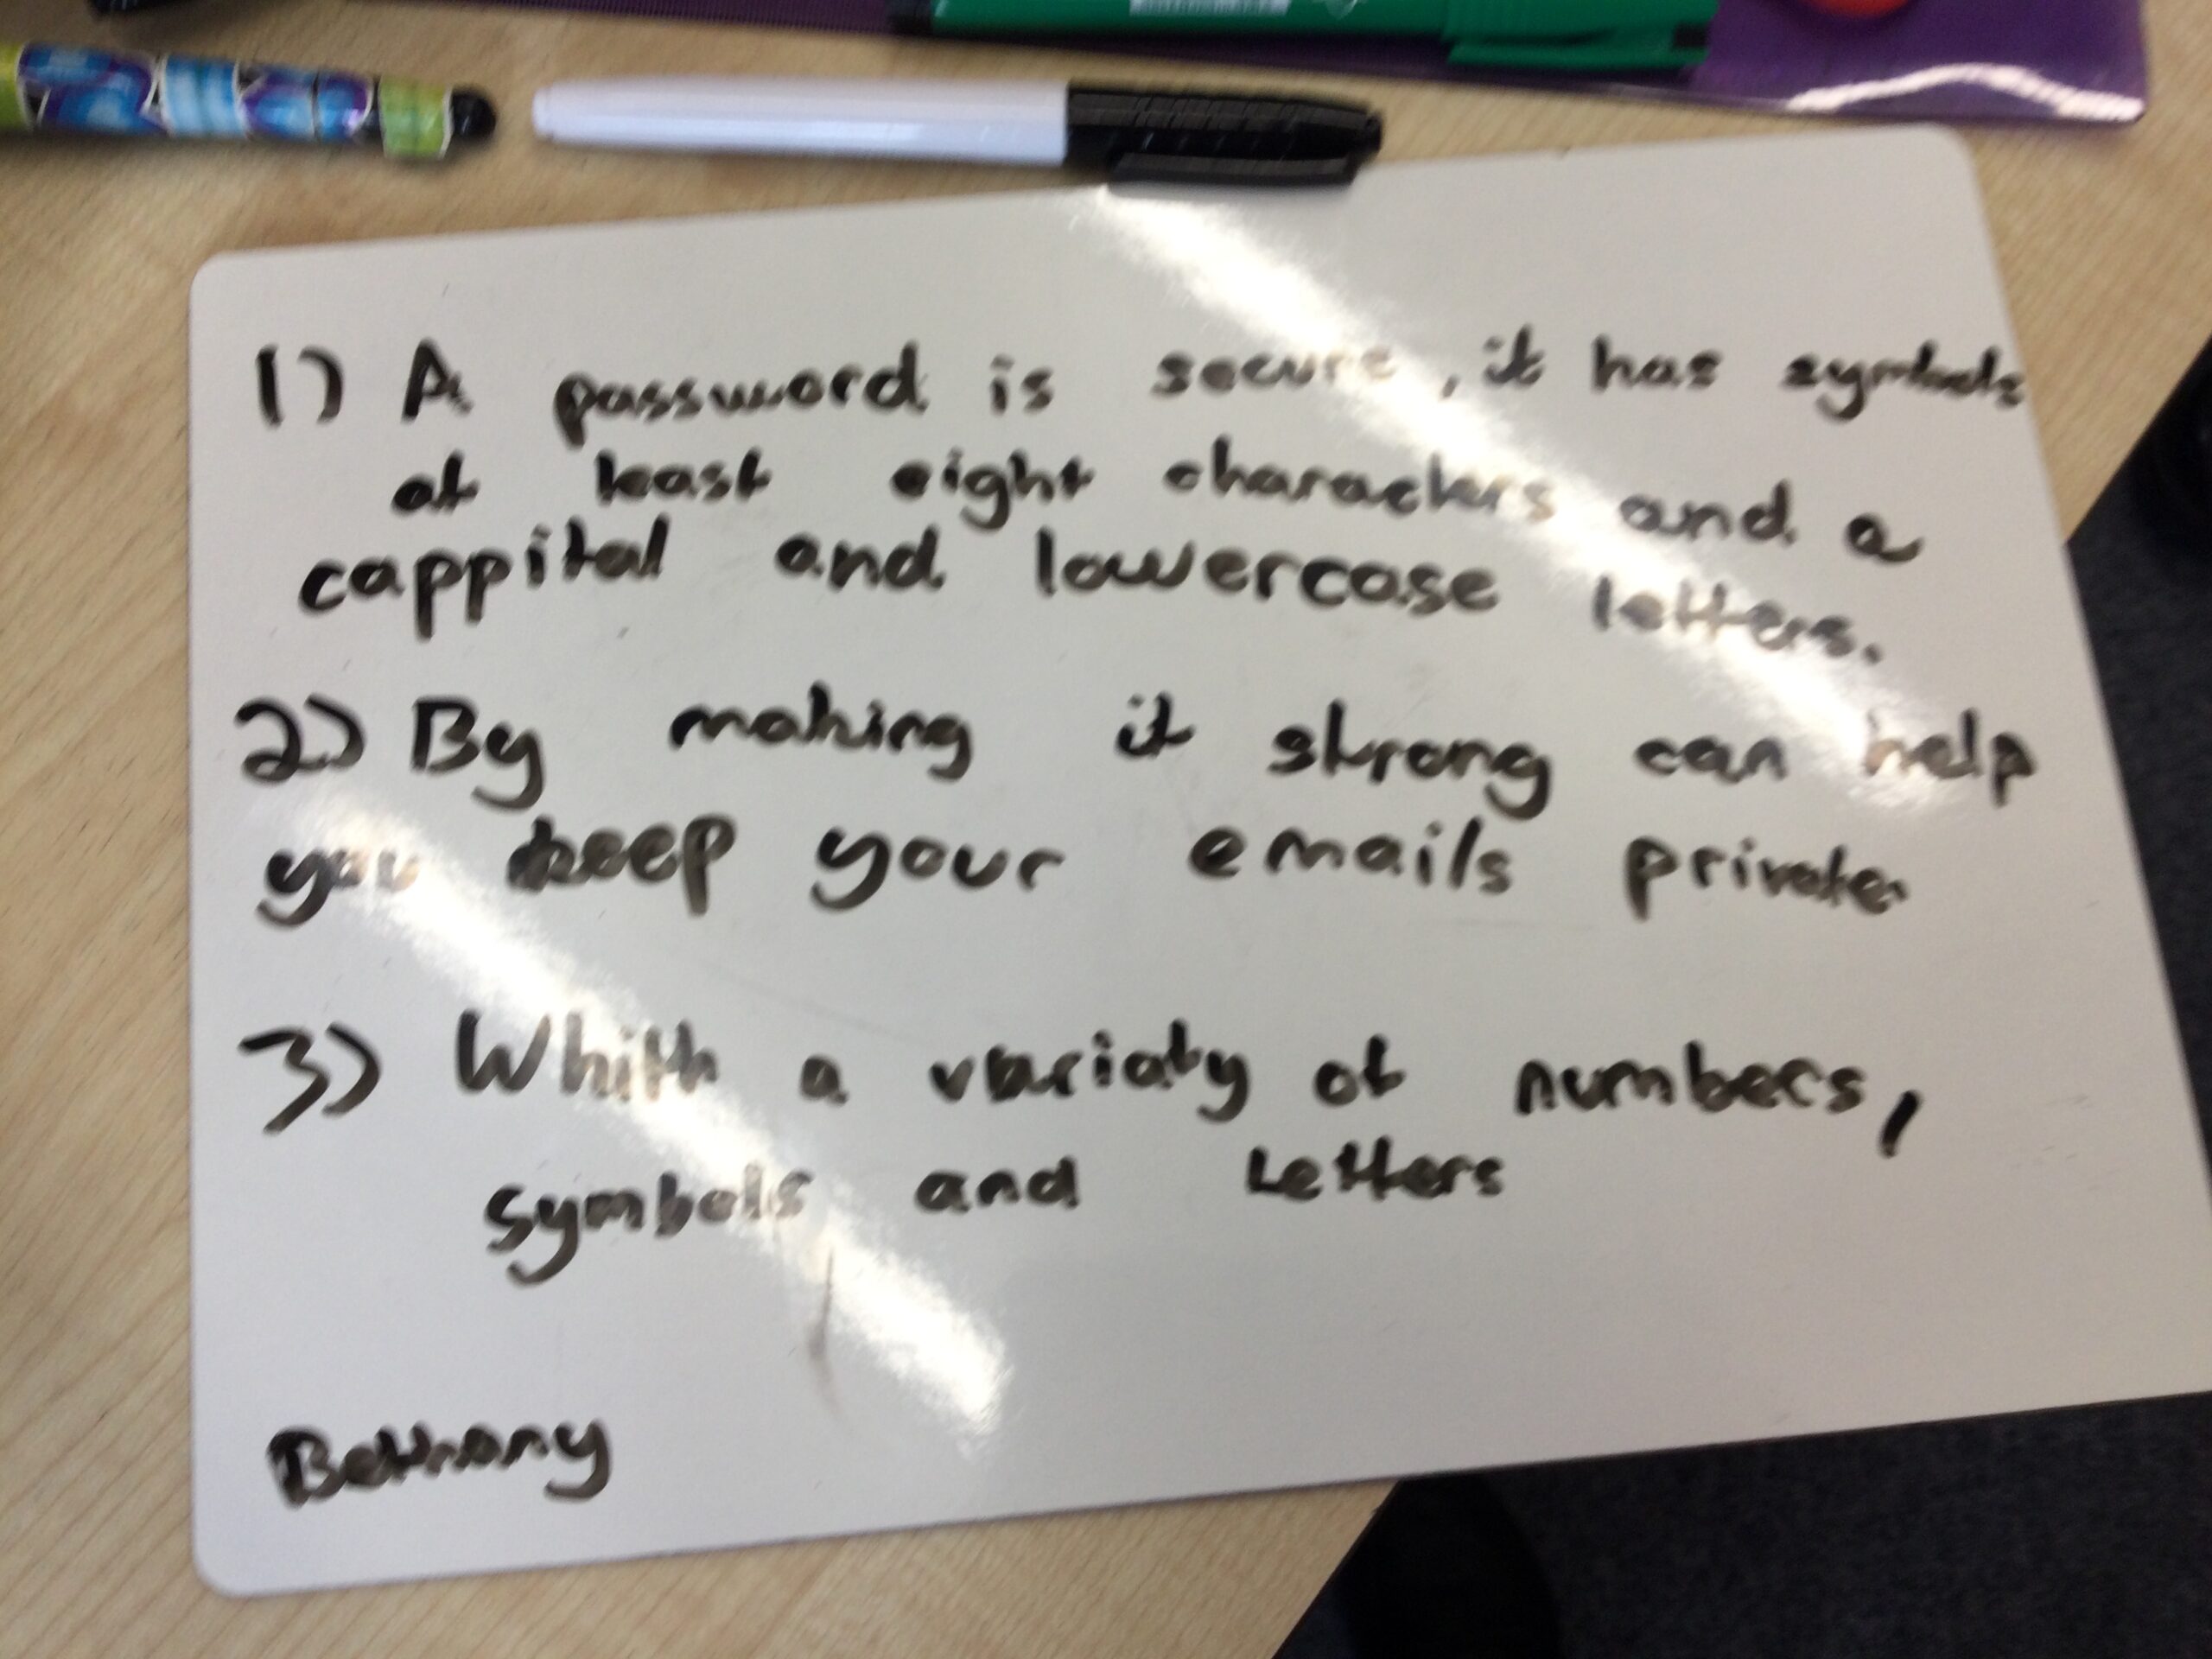 1) A password is secure, it has symbols
at least eight characters and a
cappital and lowercase letters.
2) By making it strong can help
you keep your emails private
3) Whith a variaty of numbers,
symbols and Letters
Bethany